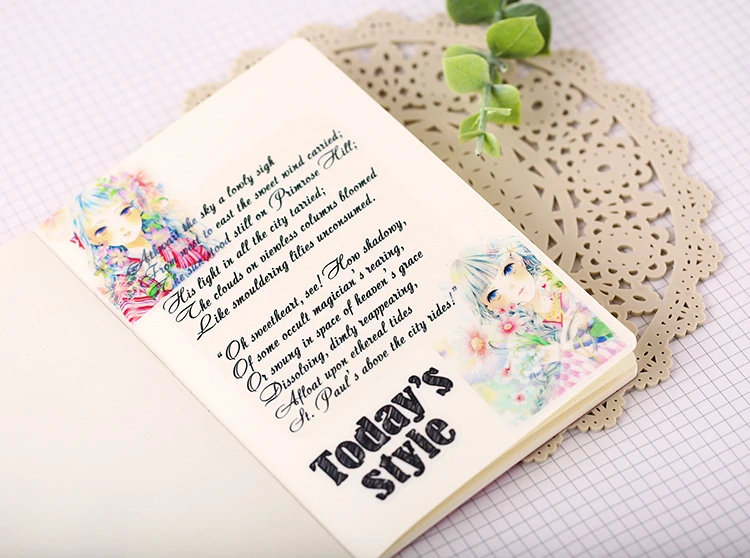 Athwart the sky a lowly sigh
From west to east the sweet wind carried;
The sun stood still on Primrose Hill;
His light in all the city tarried;
The clouds on viewless columns bloomed
Like smouldering lilies unconsumed.
“Oh sweetheart, see! How shadowy,
Of some occult magician's rearing,
Or swung in space of heaven's grace
Dissolving, dimly reappearing,
Afloat upon ethereal tides
St. Paul's above the city rides!”
Today's
style